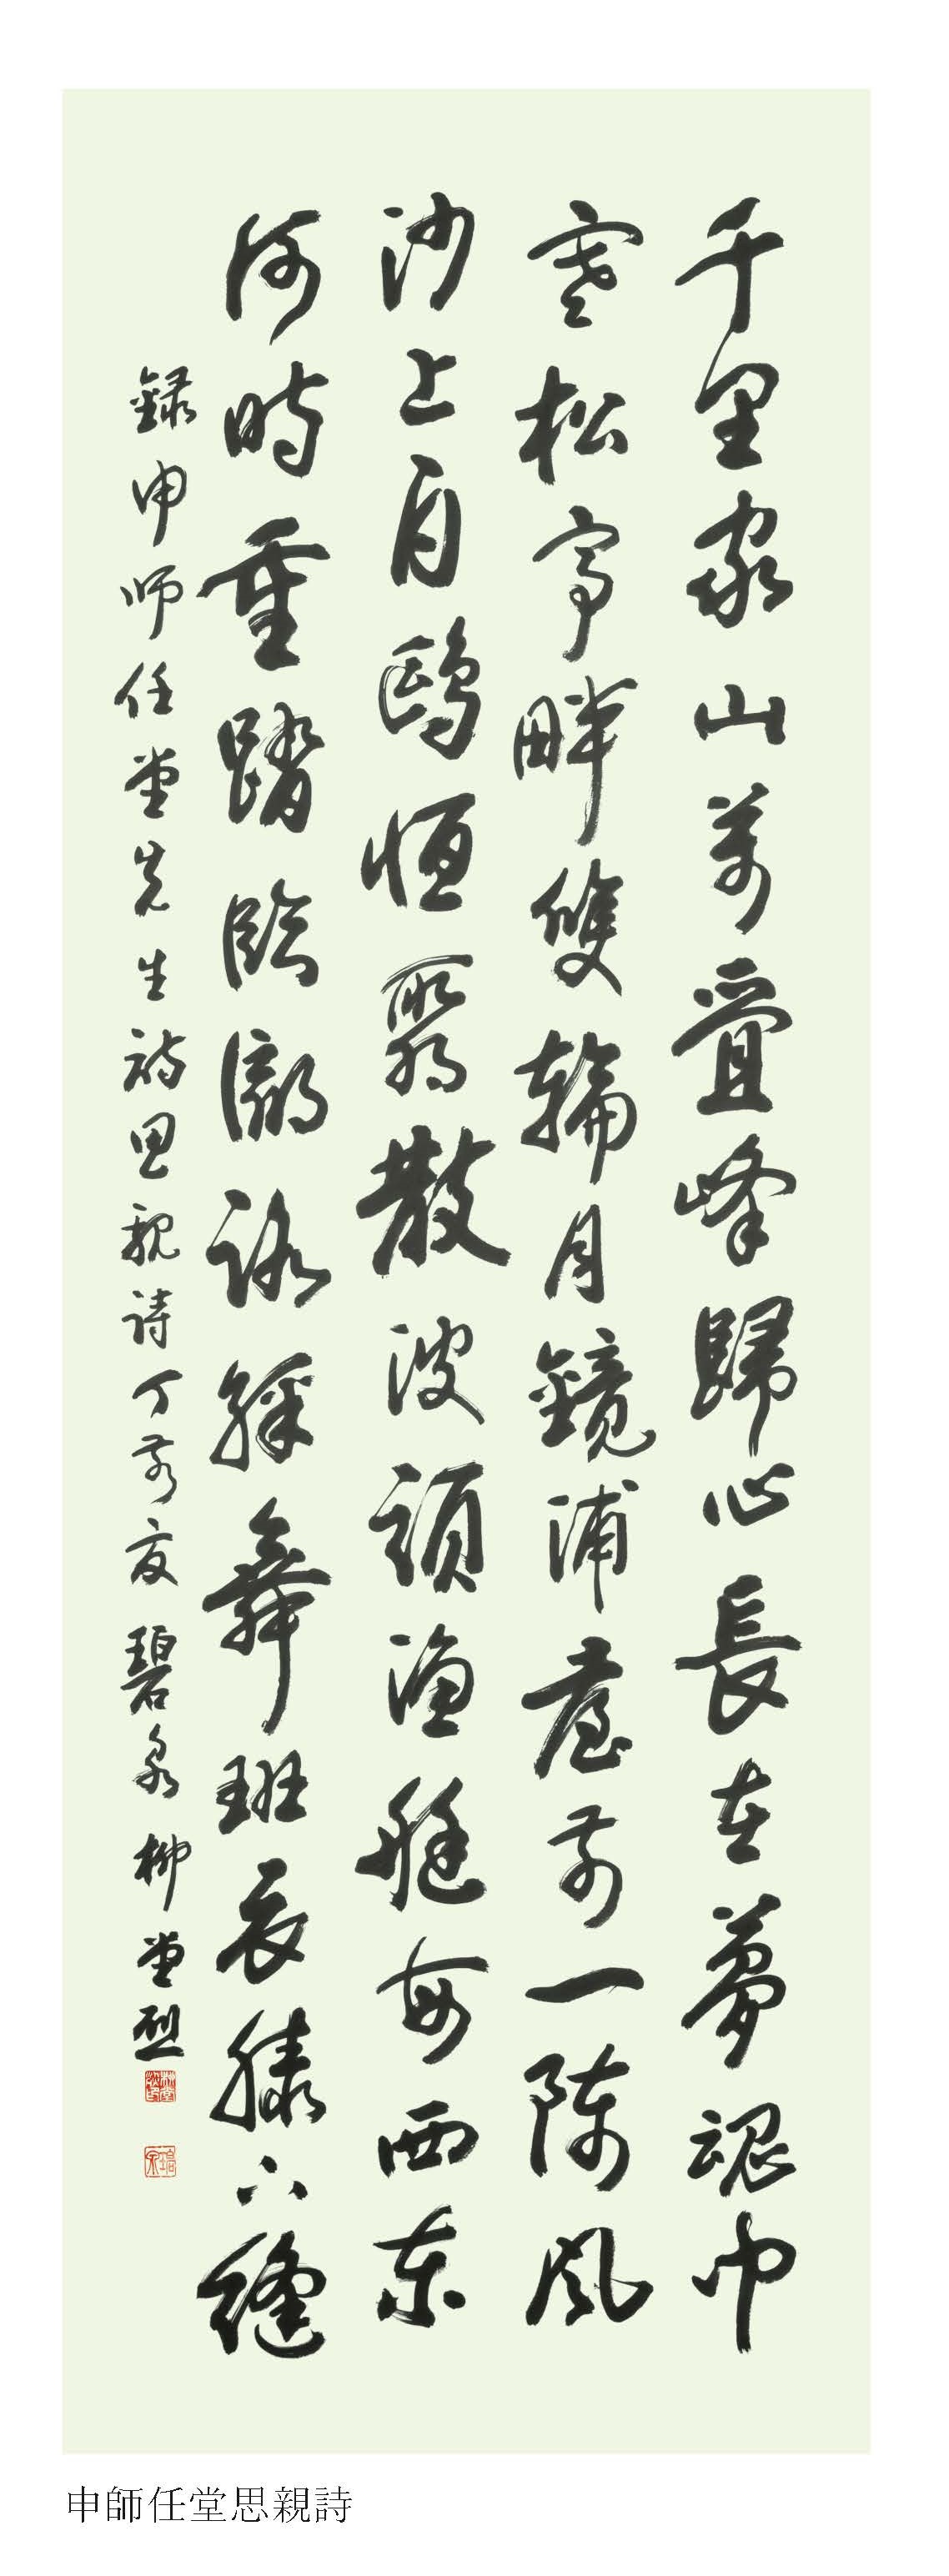 千里家山萬疊峰歸心長在夢魂中
寒松亭畔雙輪月鏡浦臺前一陣風
沙上白鷗恒聚散波頭漁艇每西東
何時重踏臨瀛路綵舞班衣膝下縫
錄申師任堂先生詩思親詩丁亥夏碧泉柳堂烈
申師任堂思親詩